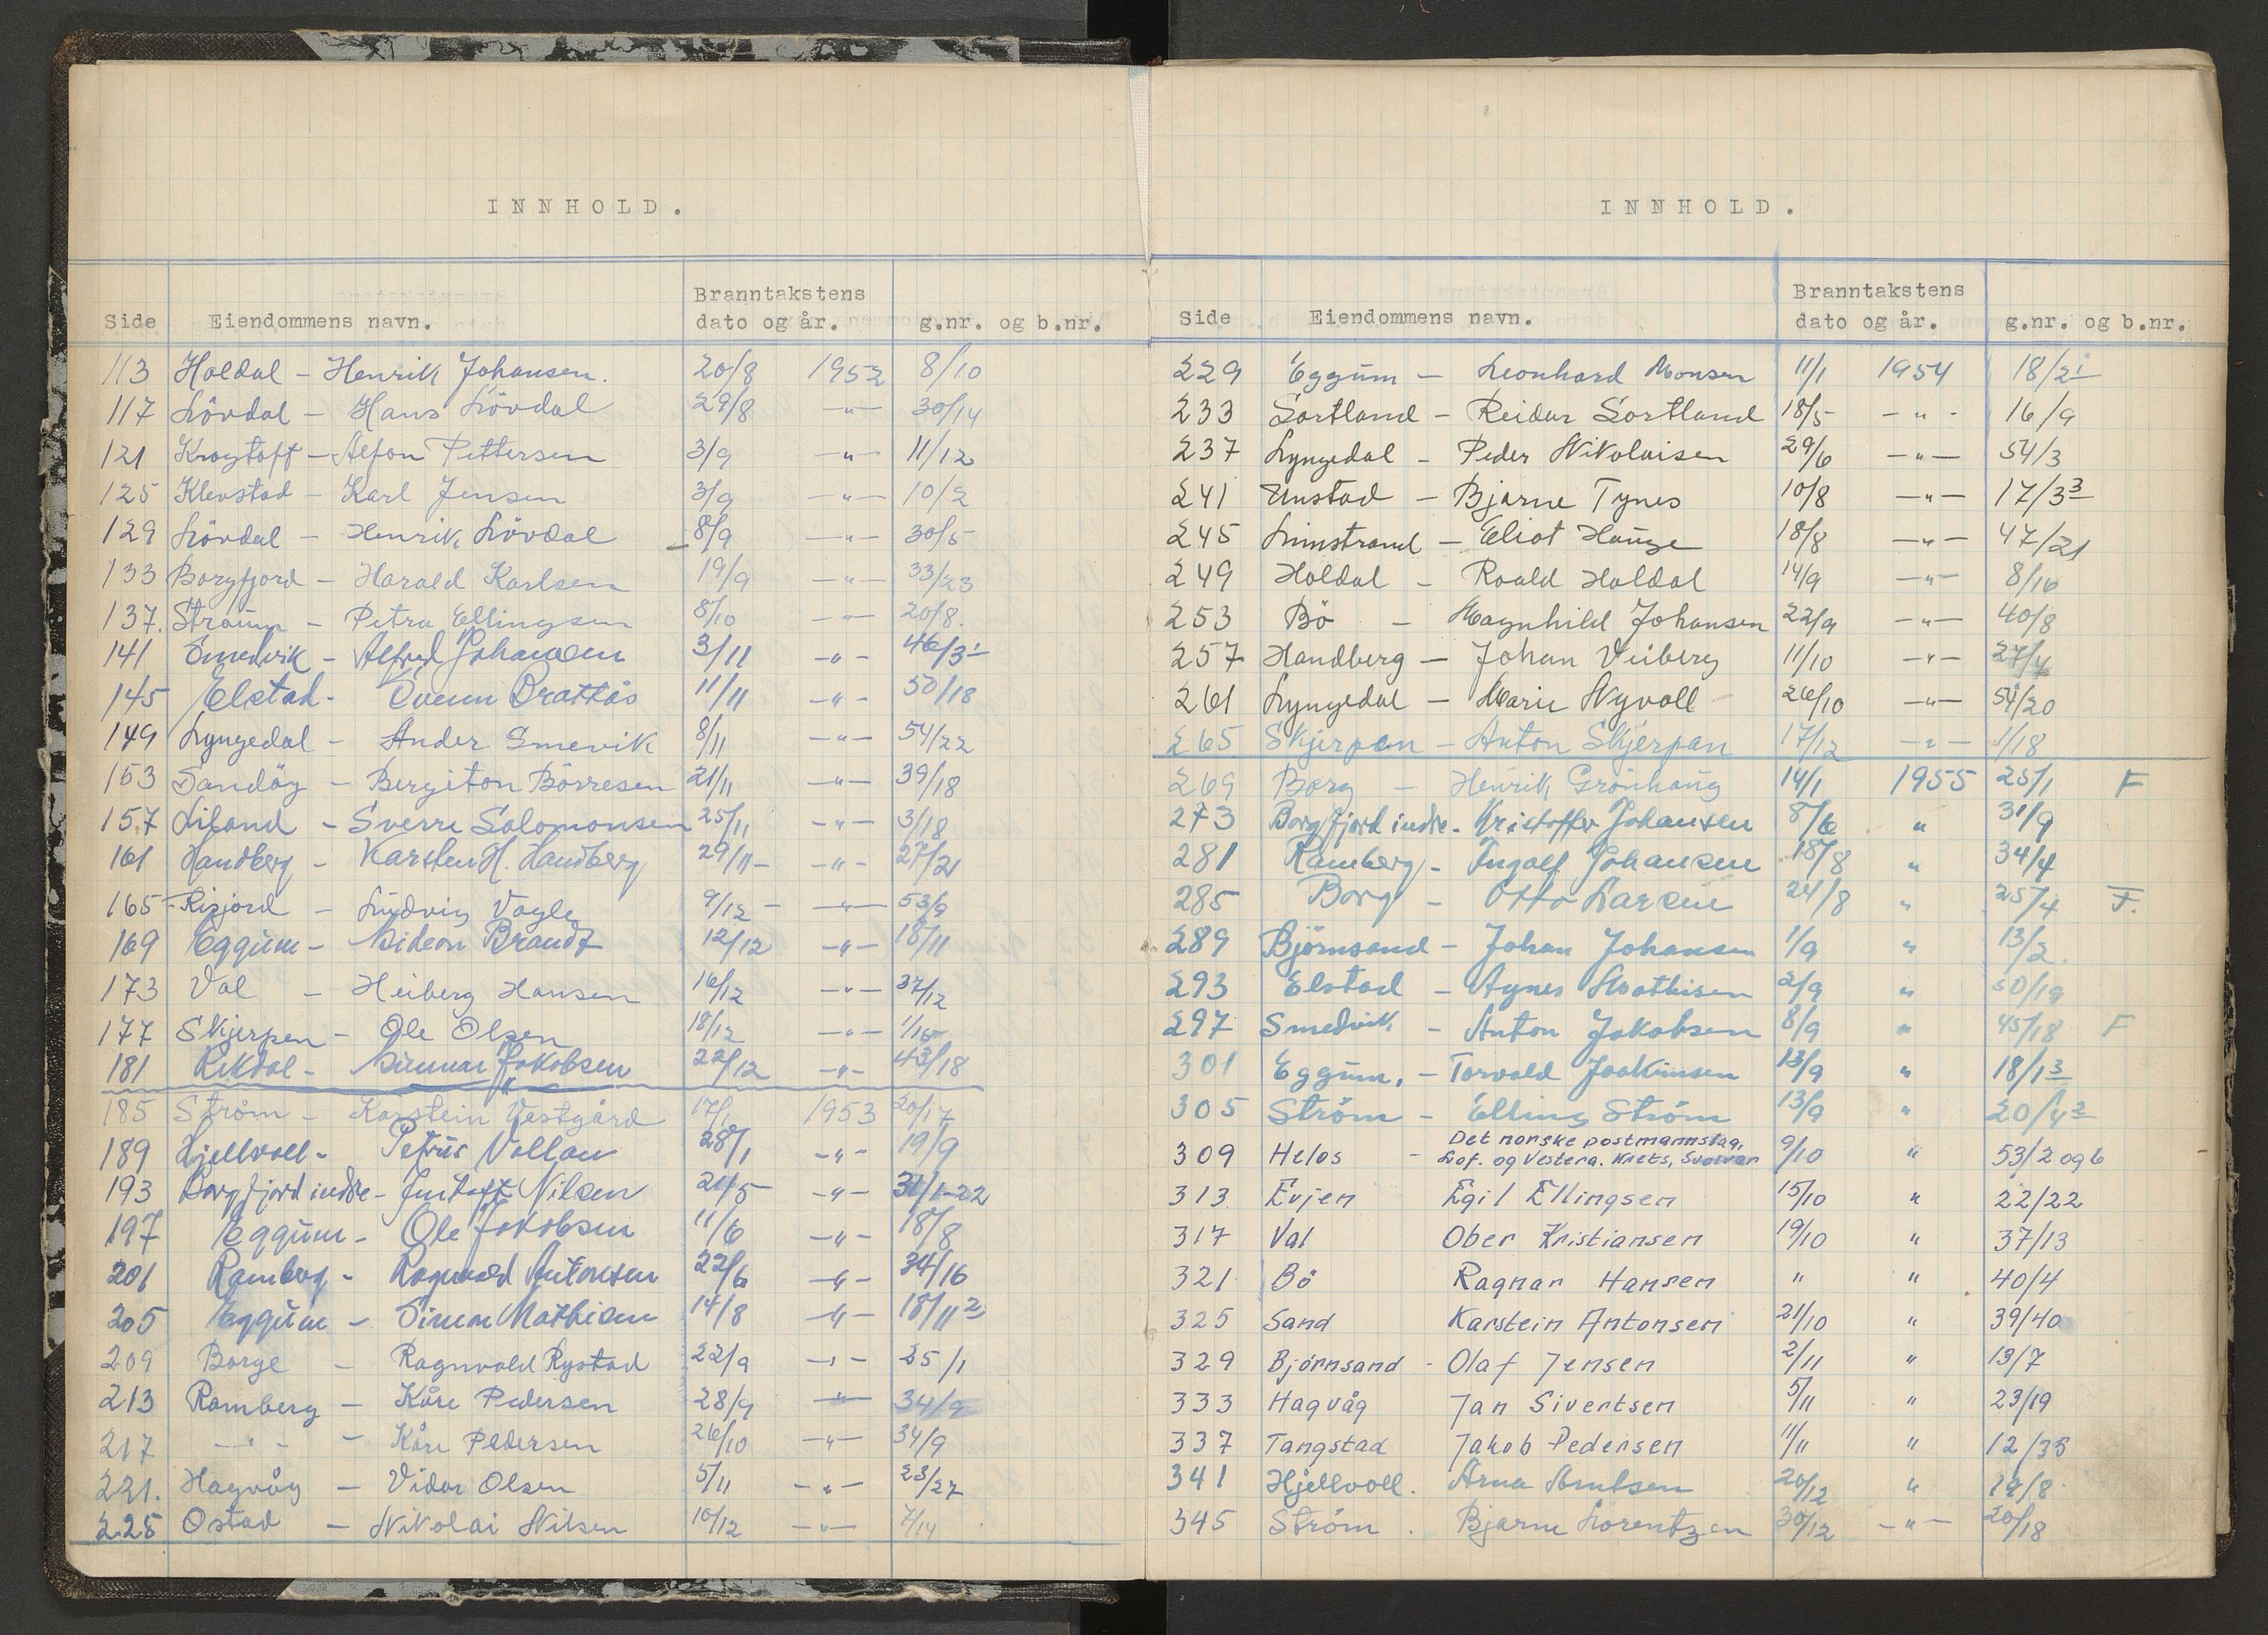 INNHOLD.
Side Eiendommens navn. Branntakstens dato og år. g.nr. og b.nr.
113 Holdal - Henrik Johansen. 20/8 1952 8/10
117 Lövdal - Hans Lövdal 29/8 -"- 30/14
121 Krogtoft - Alfon Pettersen 3/9 -"- 11/12
125 Klevstad - Karl Jensen 3/9 -"- 10/2
129 Lövdal - Henrik Lövdal 8/9 -"- 30/5
133 Borgfjord - Harald Karlsen 19/9 -"- 33/23
137. Straum - Petra Ellingsen 8/10 -"- 20/8.
141 Smedvik - Alfred Johansen 3/11 -"- 46/3¹
145 Elstad - Svenn Brattås 11/11 -"- 50/18
149 Lyngedal - Ander Smevik 8/11 -"- 54/22
153 Sandöy - Bergiton Börresen 21/11 -"- 39/18
157 Liland - Sverre Salomonsen 25/11 -"- 3/18
161 Handberg - Karsten H. Handberg 29/11 - -"- 27/21
165 - Risjord - Ludvig Vagle 9/12 - -"- 53/9
169 Eggum - Gideon Brandt 12/12 -"- 18/11
173 Val - Heiberg Hansen 16/12 -"- 37/12
177 Skjerpen - Ole Olsen 18/12 -"- 1/15
181 Rekdal - Gunnar Jakobsen 22/12 -"- 43/18
185 Ström - Karstein Vestgård 17/1 1953 20/17
189 Hjellvoll - Petrus Vollan 28/1 -"- 19/9
193 Borgfjord indre - Gustaft Nilsen 21/5 -"- 31/1-22
197 Eggum - Ole Jakobsen 11/6 -"- 18/8
201 Ramberg - Ragnvald Antonsen 22/6 -"- 34/16
205 Eggum - Simon Mathisen 14/8 -"- 18/11²
209 Borge - Ragnvald Rystad 22/9 -"- 25/1
213 Ramberg - Kåre Pedersen 28/9 -"- 34/9
217 -"- - Kåre Pedersen 26/10 -"- 34/9
221. Hagvåg - Vidar Olsen 5/11 -"- 23/27
225 Ostad - Nikolai Nilsen 10/12 -"- 7/14
INNHOLD.
Side Eiendommens navn. Branntakstens dato og år. g.nr. og b.nr.
229 Eggum - Leonhard Monsen 11/1 1954 18/2¹
233 Sortland - Reidar Sortland 18/5 -"- 16/9
237 Lyngedal - Peder Nikolaisen 29/6 -"- 54/3
241 Unstad - Bjarne Tynes 10/8 -"- 17/3³
245 Limstrand - Eliot Hauge 18/8 -"- 47/21
249 Holdal - Roald Holdal 14/9 -"- 8/16
253 Bö - Magnhild Johansen 22/9 -"- 40/8
257 Handberg - Johan Veiberg 11/10 -"- 27/4
261 Lyngedal - Marie Nyvoll 26/10 -"- 54/20
265 Skjerpen - Anton Skjerpan 17/12 -"- 1/18
269 Borg - Henrik Grönhaug 14/1 1955 25/1 F
273 Borgfjord indre. Kristoffer Johansen 8/6 " 31/9
281 Ramberg - Ingolf Johansen 18/8 " 34/4
285 Borg - Otto Larsen 24/8 " 25/4 F.
289 Björnsand - Johan Johansen 1/9 " 13/2.
293 Elstad - Agnes Mathisen 2/9 " 50/19
297 Smedvik - Anton Jakobsen 8/9 " 45/18 F
301 Eggum. - Torvald Joakimsen 13/9 " 18/1³
305 Ström - Elling Ström 13/9 " 20/4²
309 Helos - Det norske postmannslag, Lof. og Vestera. Krets, Svolvær 9/10 " 53/2 og 6
313 Evjen Egil Ellingsen 15/10 " 22/22
317 Val Ober Kristiansen 19/10 " 37/13
321 Bö Ragnar Hansen " " 40/4
325 Sand Karstein Antonsen 21/10 " 39/40
329 Björnsand - Olaf Jensen 2/11 " 13/7
333 Hagvåg Jan Sivertsen 5/11 " 23/19
337 Tangstad Jakob Pedersen 11/11 " 12/35
341 Hjellvoll. Arna Arntsen 20/12 " 19/8
345 Ström . Bjarne Lorentzen 30/12 -"- 20/18